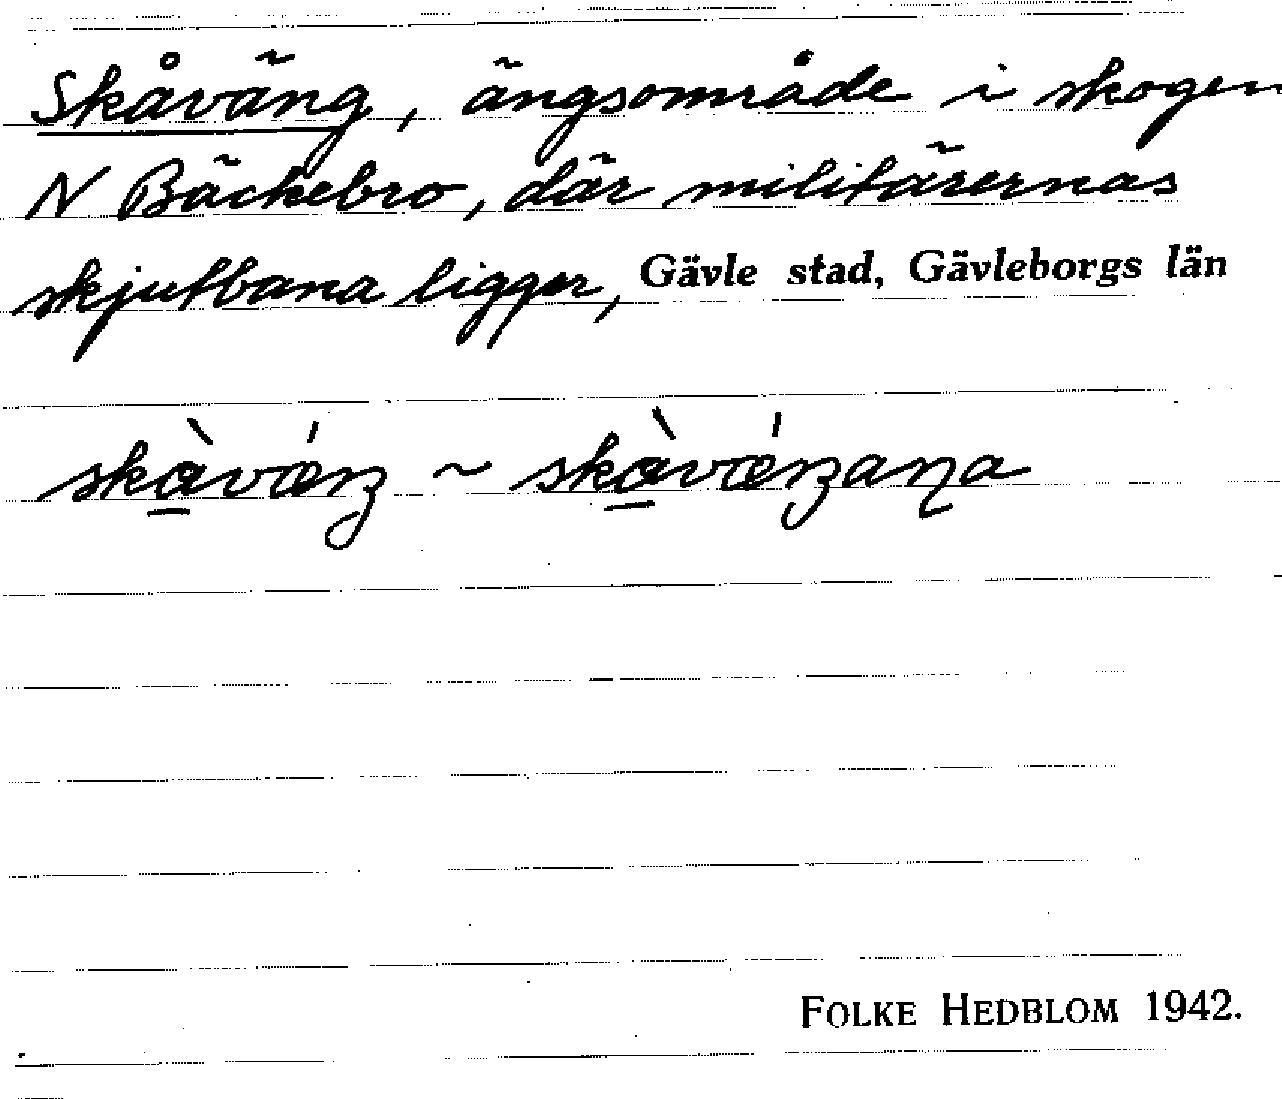 Skåväng, ängsområde i skogen
N Bäckebro, där militärernas
skjutbana ligger, Gävle stad, Gävleborgs län
skɑ̱̀vǽŋ ~ skɑ̱̀vǽŋaɳa
FOLKE HEDBLOM 1942.